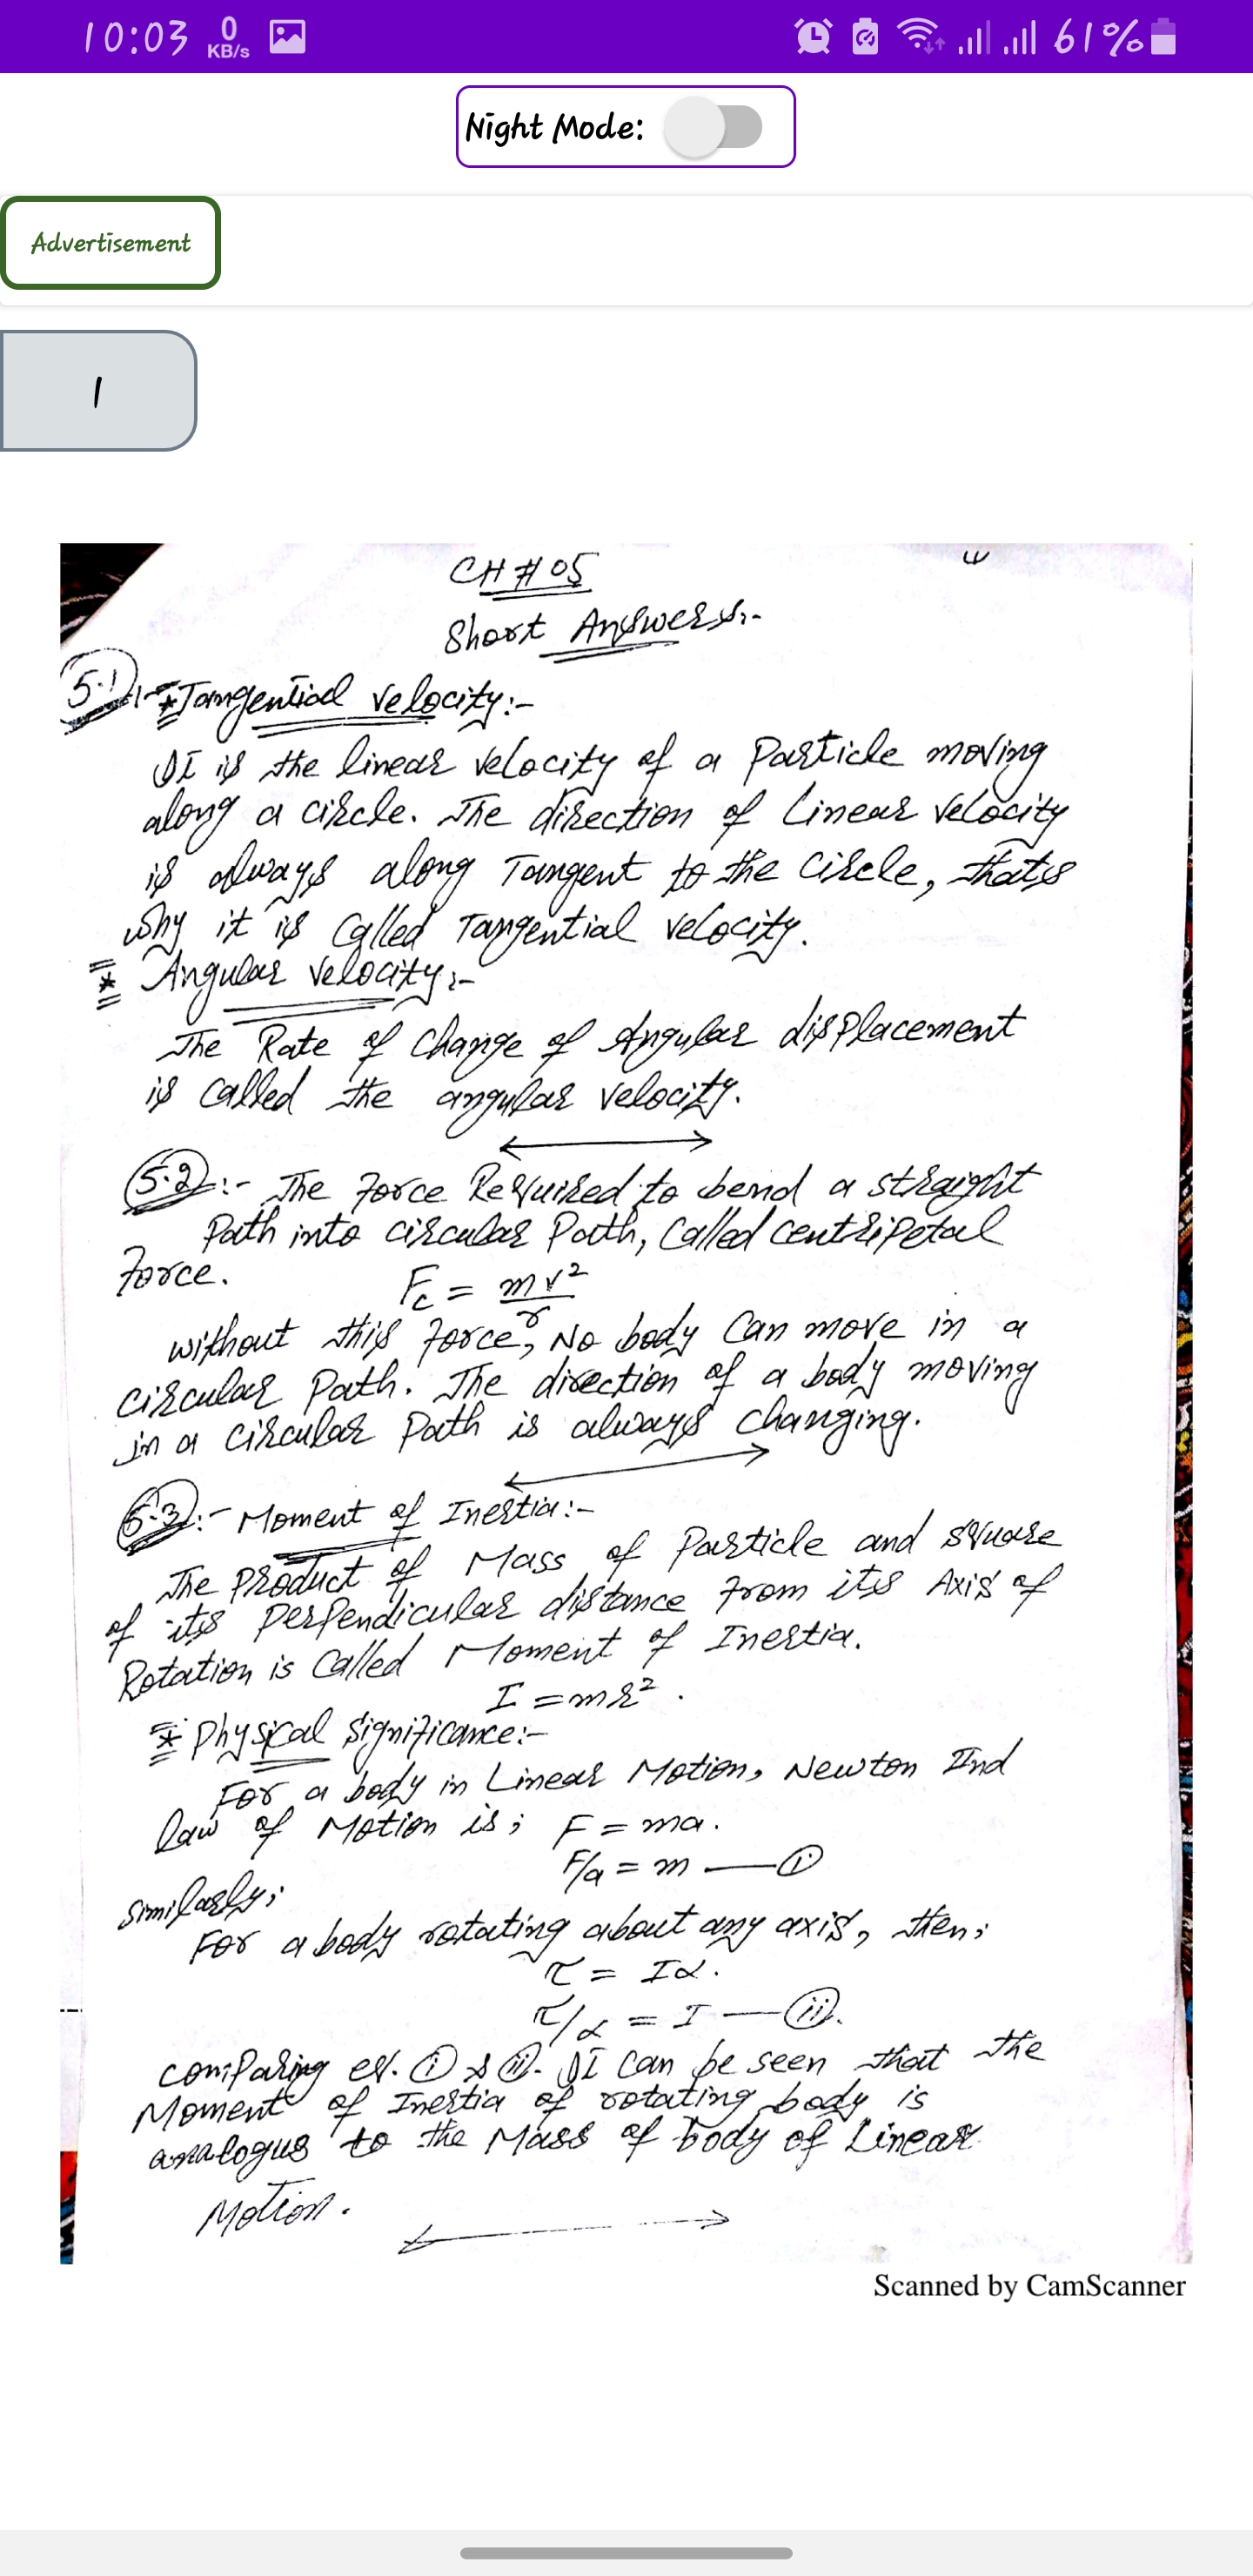 10:03 0 KB/s 61%
Night Mode:
Advertisement
1
CH # 05
Short Answers:-
5.1 :- * Tangential velocity:-
It is the linear velocity of a Particle moving
along a circle. The direction of Linear velocity
is always along Tangent to the circle, thats
why it is Called Tangential velocity.
* Angular velocity:-
The Rate of Change of Angular displacement
is called the angular velocity.
5.2 :- The Force Required to bend a straight
Path into circular Path, Called centripetal
Force.
Fc = mv²/r
without this Force, No body Can move in a
circular Path. The direction of a body moving
in a circular Path is always changing.
5.3 :- Moment of Inertia:-
The Product of Mass of Particle and square
of its Perpendicular distance From its Axis of
Rotation is Called Moment of Inertia.
I = mr².
* Physical Significance:-
For a body in Linear Motion, Newton IInd
law of Motion is; F = ma.
F/a = m — (i)
Similarly;
For a body rotating about any axis, then;
τ = Iα.
τ/α = I — (ii).
comparing eq. (i) & (ii). It Can be seen that the
Moment of Inertia of rotating body is
analogus to the Mass of body of Linear
Motion.
Scanned by CamScanner